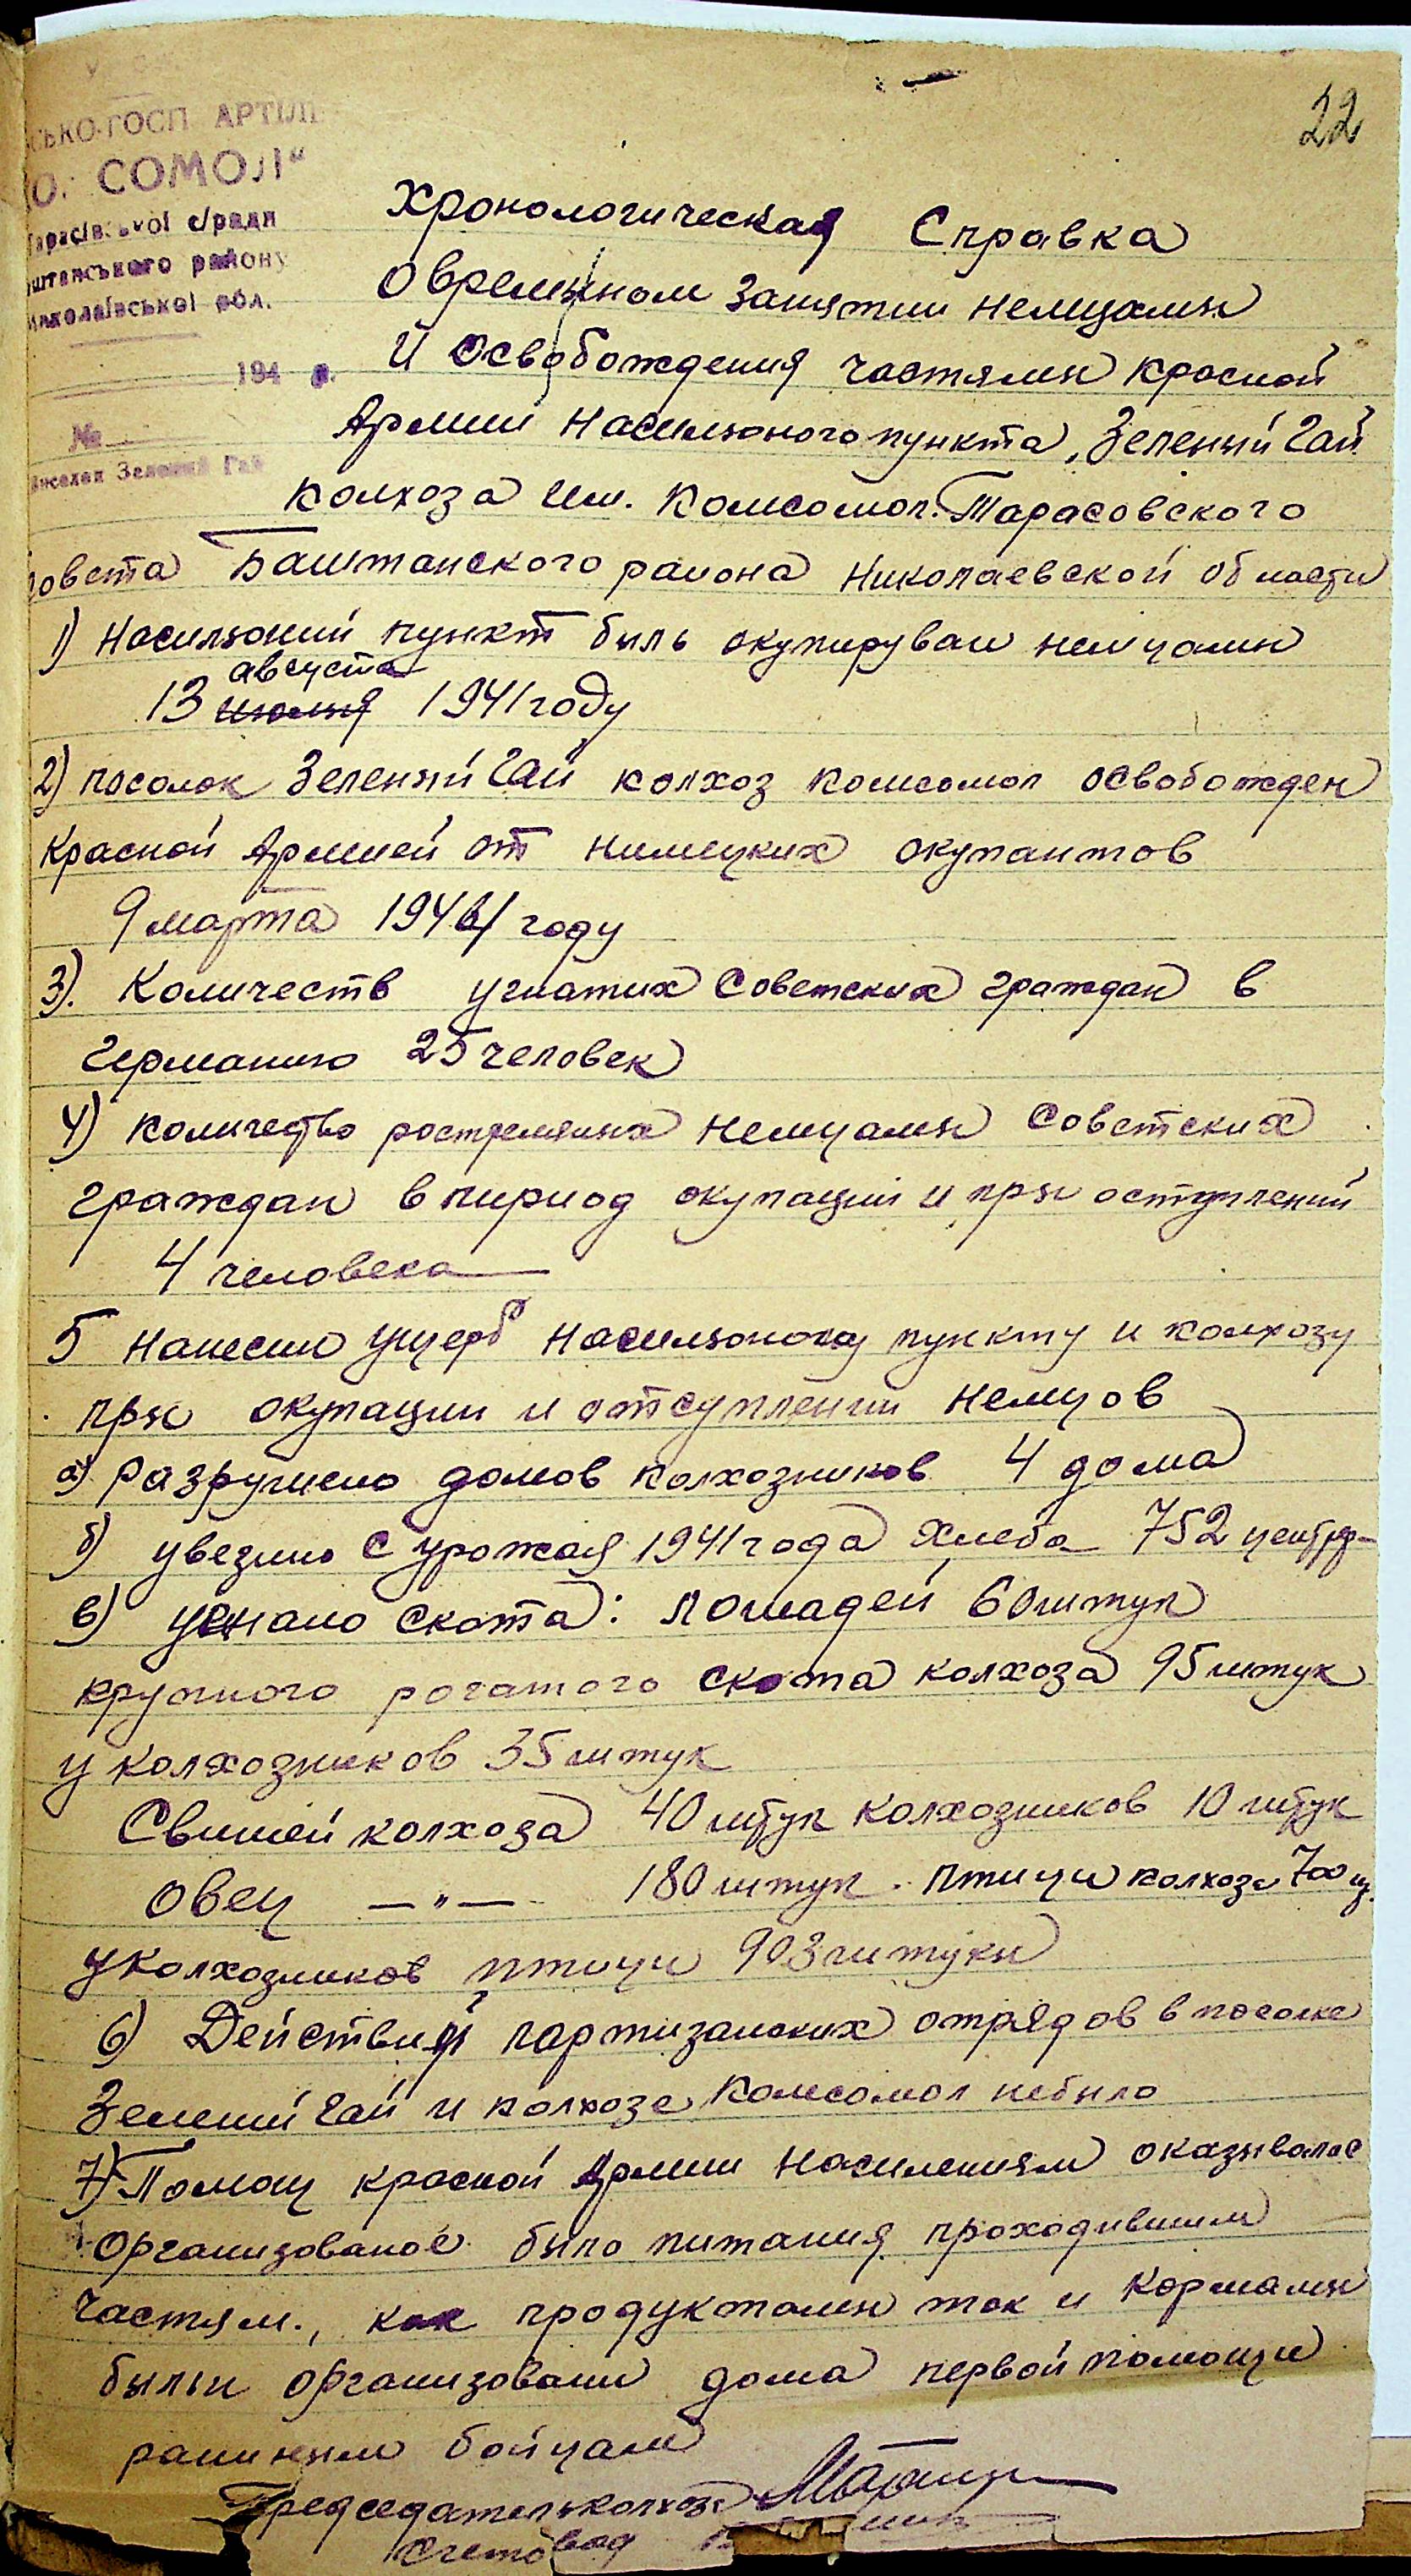 22
СЬКО-ГОСП АРТІЛІ
СОМОЛ"
Тарасівської с/ради
штанського району
Миколаївської обл.
194 р.
№
виселок Зелений Гай
Хронологическая Справка
о временном занятии немцамы
и освобождения частямы красной
Армии Насильоного пункта, Зелений Гай
колхоза им. Комсомол. Тарасовского
совета Баштанского района Николаевской области
1) Насильоний пункт быль окупируван немцамы
августа
13 июля 1941 году
2) посолок Зеленый Гай колхоз комсомол освобожден
Красной Армией от нимецких окупантов
9 марта 1944 году
3). Количеств угнатих Советских граждан в
Германию 25 человек
4) количество рострелянных немцамы Советских
граждан в пириод окупации и пры оступлений
4 человека
5 Нанесино ущерб насильоному пункту и колхозу
пры окупации и отступлении немцов
а) разрушено домов колхозников 4 дома
б) увезино с урожая 1941 года хлеба 752 центр-
в) угнано скота: лошадей 60 штук
крупного рогатого скота колхоза 95 штук
у колхозников 35 штук
Свиней колхоза 40 штук колхозников 10 штук
овец —"— 180 штук. птици колхоза 700 ш.
у колхозников птици 903 штукы
6) Действий партизанских отрядов в посолке
Зелений Гай и колхозе Комсомол небыло
7) Помощ красной Армии насилениям оказывалас
организованое было питания проходившим
частям., как продуктамы так и кормамы
былы организовани дома первой помощи
раниным бойцам
Председатель колхоза
Счетовод